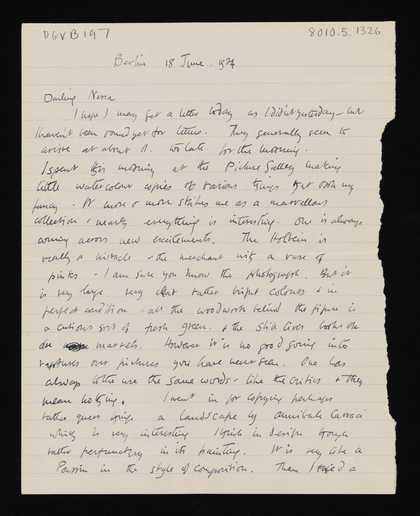 DGVB197
8010.5.1326
Berlin 18 June. 1924
Darling Nessa
I hope I may get a letter today as I didn't yesterday - but
I haven't been round yet for letters. They generally seem to
arrive at about 11. too late for the morning.
I spent this morning at the Picture Gallery making
little watercolour copies of various things that took my
fancy. It more & more strikes me as a marvellous
collection - nearly everything is interesting. One is always
coming across new excitements. The Holbein is
really a miracle - the merchant with a vase of
pinks - I am sure you know the photograph. But it
is very large very rather bright colours & in
perfect condition - all the woodwork behind the figure is
a curious sort of fresh green. & the still lives books &c
are marvels. However it is no good going into
raptures over pictures you have never seen. One has
always to use the same words - like the critics & they
mean nothing. I went in for copying perhaps
rather queer things. a landscape by Annibale Caracci
which is very interesting I think in design though
rather perfunctory in its painting. It is very like a
Poussin in the style of composition. Then I tried a